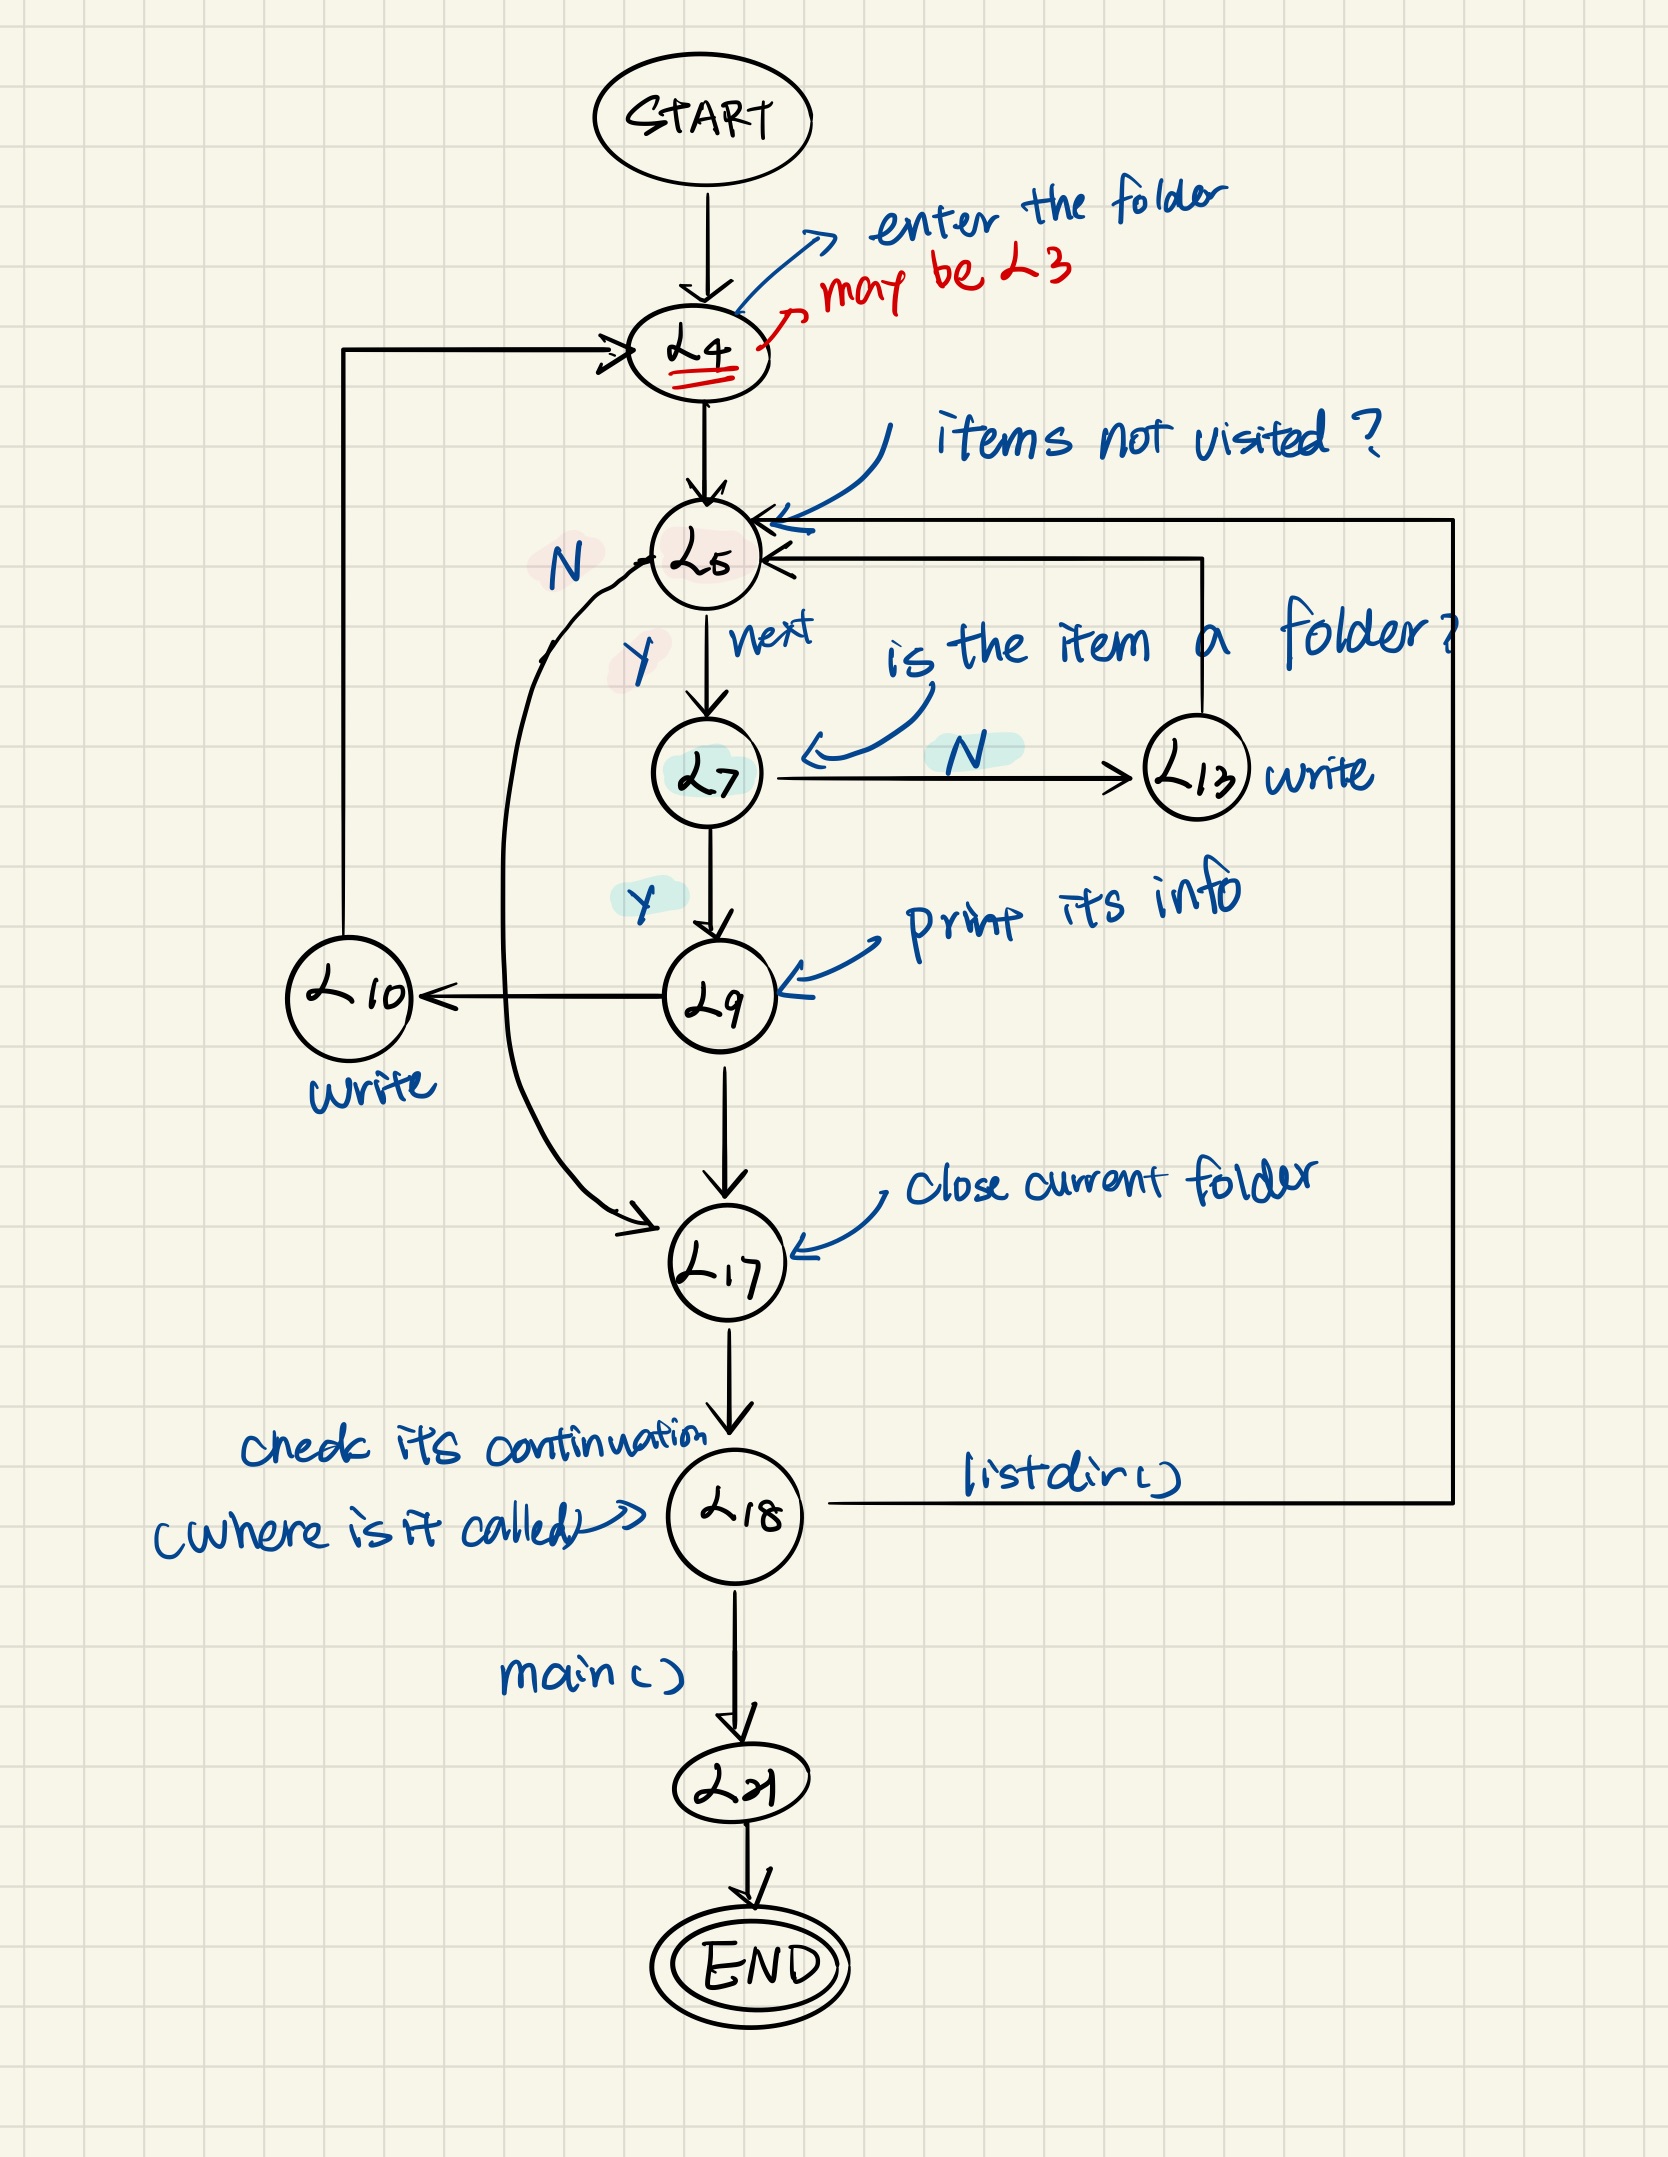 START
enter the folder
may be L3
L4
items not visited ?
N
L5
Y
next
is the item a folder ?
L7
N
L13
write
Y
print its info
L10
L9
write
close current folder
L17
check its continuation
(where is it called)
L18
listdir()
main()
L21
END